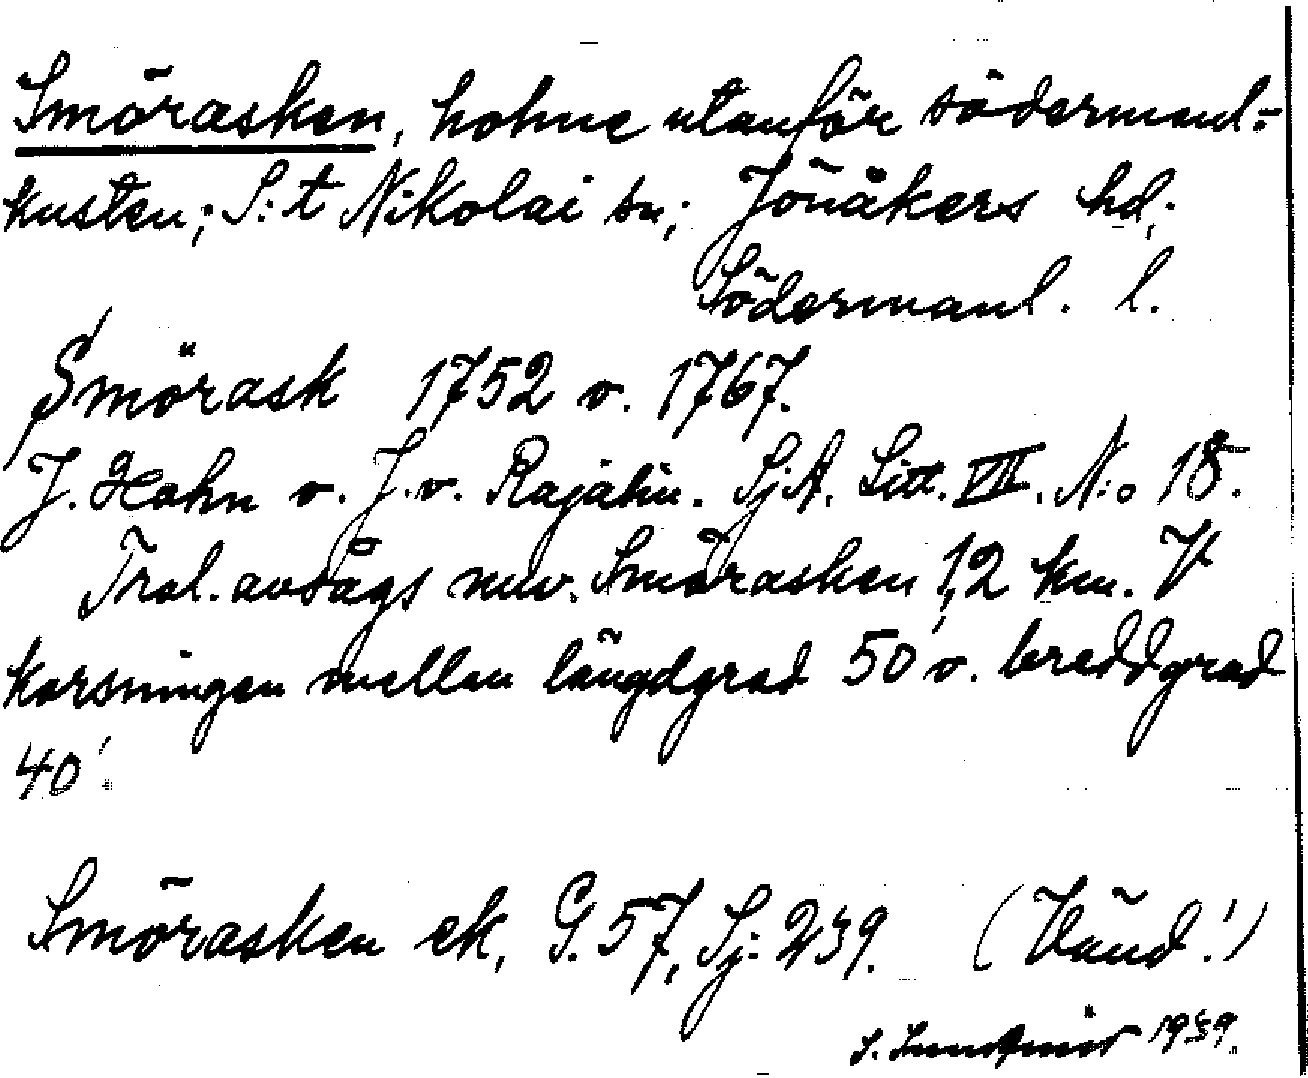 Smörasken, holme utanför södermanl:
kusten; S:t Nikolai sn; Jönåkers hd;
Södermanl. l.
Smörask 1752 o. 1767.
J. Hahn o. J. v. Rajalin. SjA. Litt. VIII. N:o 18.
Trol. avsågs nuv. Smörasken 1,2 km. V
korsningen mellan längdgrad 50' o. breddgrad
40'.
Smörasken ek, G. 57, Sj: 239. (Vänd!)
S. 1939.